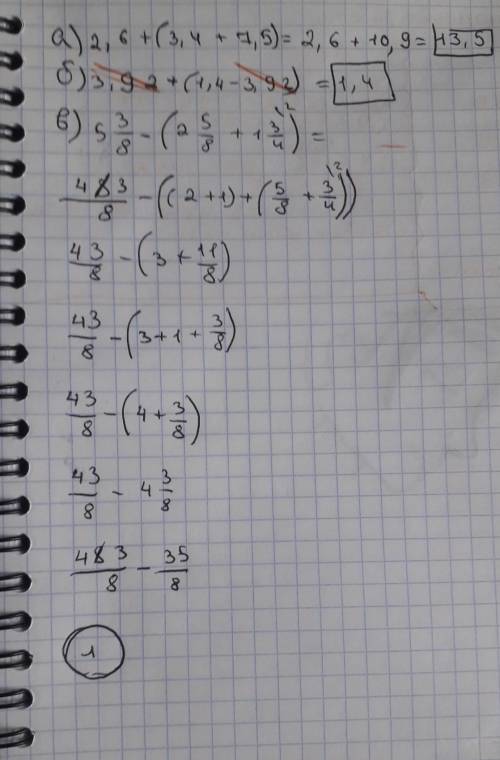 а) 2,6 + (3,4 + 7,5) = 2,6 + 10,9 = 13,5
б) 3,92 + (1,4 - 3,92) = 1,4
в) 5 3/8 - (2 5/8 + 1 3/4 \2) =
483/8 - ((2+1) + (5/8 + 3/4 \2))
43/8 - (3 + 11/8)
43/8 - (3+1 + 3/8)
43/8 - (4 + 3/8)
43/8 - 4 3/8
483/8 - 35/8
1